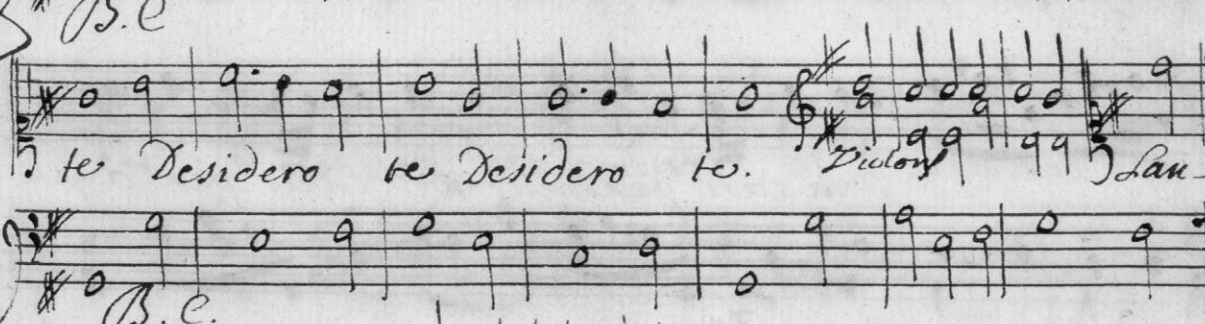 B.C
te Desidero te Desidero te. Violons Lau-
B.C.